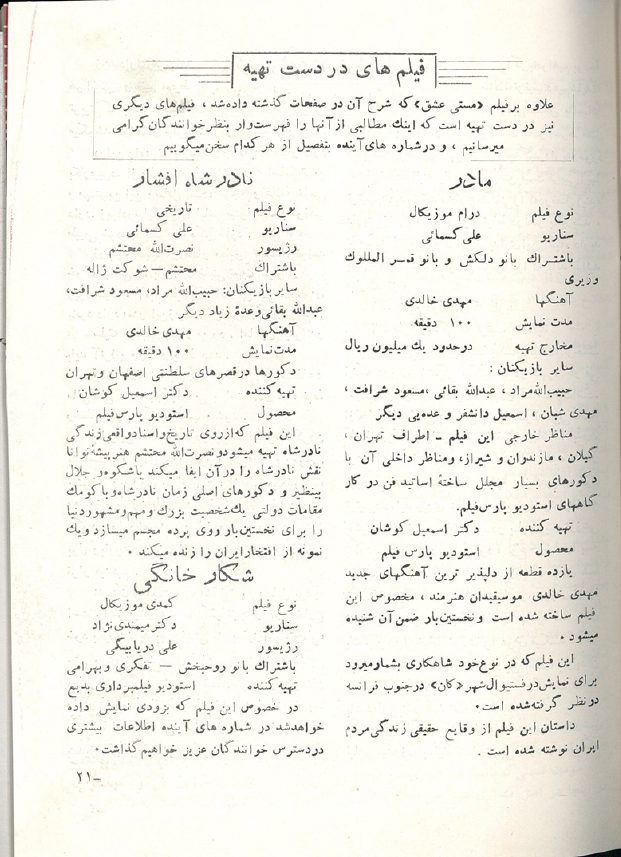 فیلم های در دست تهیه
علاوه بر فیلم «مستی عشق» که شرح آن در صفحات گذشته داده شد ، فیلم‌های دیگری
نیز در دست تهیه است که اینک مطالبی از آنها را فهرست‌وار بنظر خوانندگان گرامی
میرسانیم ، و در شماره های آینده بتفصیل از هر کدام سخن میگوییم
مادر
نوع فیلم درام موزیکال
سناریو علی کسمائی
باشتراک بانو دلکش و بانو قمر الملوک
وزیری
آهنگها مهدی خالدی
مدت نمایش ۱۰۰ دقیقه
مخارج تهیه در حدود یک میلیون ریال
سایر بازیکنان :
حبیب‌الله مراد ، عبدالله بقائی ، مسعود شرافت ،
مهدی شیان ، اسمعیل دانشفر و عده‌یی دیگر
مناظر خارجی این فیلم ـ اطراف تهران ،
گیلان ، مازندران و شیراز ، ومناظر داخلی آن با
دکورهای بسیار مجلل ساختهٔ اساتید فن در کار
گاههای استودیو پارس فیلم.
تهیه کننده دکتر اسمعیل کوشان
محصول استودیو پارس فیلم
یازده قطعه از دلپذیر ترین آهنگهای جدید
مهدی خالدی موسیقیدان هنرمند ، مخصوص این
فیلم ساخته شده است و نخستین‌بار ضمن آن شنیده
میشود .
این فیلم که در نوع خود شاهکاری بشمار میرود
برای نمایش در فستیوال شهر «کان» در جنوب فرانسه
در نظر گرفته شده است .
داستان این فیلم از وقایع حقیقی زندگی مردم
ایران نوشته شده است .
نادر شاه افشار
نوع فیلم تاریخی
سناریو علی کسمائی
رژیسور نصرت‌الله محتشم
باشتراک محتشم — شوکت ژاله
سایر بازیکنان: حبیب‌الله مراد، مسعود شرافت،
عبدالله بقائی وعدهٔ زیاد دیگر
آهنگها مهدی خالدی
مدت نمایش ۱۰۰ دقیقه
دکورها در قصرهای سلطنتی اصفهان و تهران
تهیه کننده دکتر اسمعیل کوشان
محصول استودیو پارس فیلم
این فیلم که از روی تاریخ و اسناد واقعی زندگی
نادرشاه تهیه میشود و نصرت‌الله محتشم هنرپیشهٔ توانا
نقش نادرشاه را در آن ایفا میکند باشکوه و جلال
بینظیر و دکورهای اصلی زمان نادرشاه و با کومک
مقامات دولتی یک شخصیت بزرگ و مهم و مشهور دنیا
را برای نخستین‌بار روی پرده مجسم میسازد و یک
نمونه از افتخار ایران را زنده میکند .
شکار خانگی
نوع فیلم کمدی موزیکال
سناریو دکتر میمندی نژاد
رژیسور علی دریابیگی
باشتراک بانو روحبخش — تفکری و بهرامی
تهیه کننده استودیو فیلمبرداری بدیع
در خصوص این فیلم که بزودی نمایش داده
خواهد شد در شماره های آینده اطلاعات بیشتری
در دسترس خوانندگان عزیز خواهیم گذاشت .
ـ ۲۱